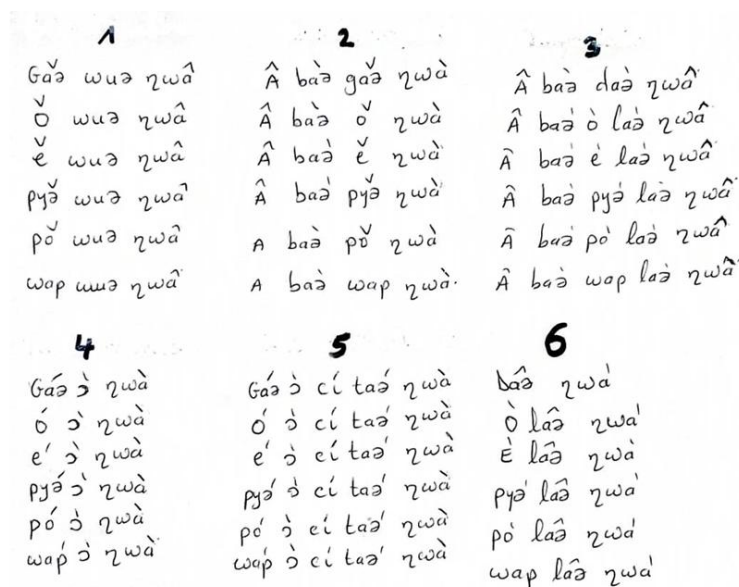 1
Gǎə wuə ŋwâ
Ǒ wuə ŋwâ
ě wuə ŋwâ
pyə̌ wuə ŋwâ
pǒ wuə ŋwâ
wap wuə ŋwâ
2
Â baə̀ gǎə ŋwà
Â baə̀ ǒ ŋwà
Â baə̀ ě ŋwà
Â baə̀ pyə̌ ŋwà
A baə̀ pǒ ŋwà
A baə̀ wap ŋwà.
3
Â baə̀ daə̀ ŋwâ
Â baə̀ ò laə̀ ŋwâ
Â baə̀ è laə̀ ŋwâ
Â baə̀ pyə̀ laə̀ ŋwâ
Â baə̀ pò laə̀ ŋwâ
Â baə̀ wap laə̀ ŋwâ
4
Gáə ɔ̀ ŋwà
ó ɔ̀ ŋwà
é ɔ̀ ŋwà
pyə́ ɔ̀ ŋwà
pó ɔ̀ ŋwà
waṕ ɔ̀ ŋwà
5
Gáə ɔ̀ cí taə́ ŋwà
ó ɔ̀ cí taə́ ŋwà
é ɔ̀ cí taə́ ŋwà
pyə́ ɔ̀ cí taə́ ŋwà
pó ɔ̀ cí taə́ ŋwà
waṕ ɔ̀ cí taə́ ŋwà
6
Dâə ŋwà
Ò lâə ŋwà
È lâə ŋwà
pyə̀ lâə ŋwà
pò lâə ŋwà
wap lâə ŋwà